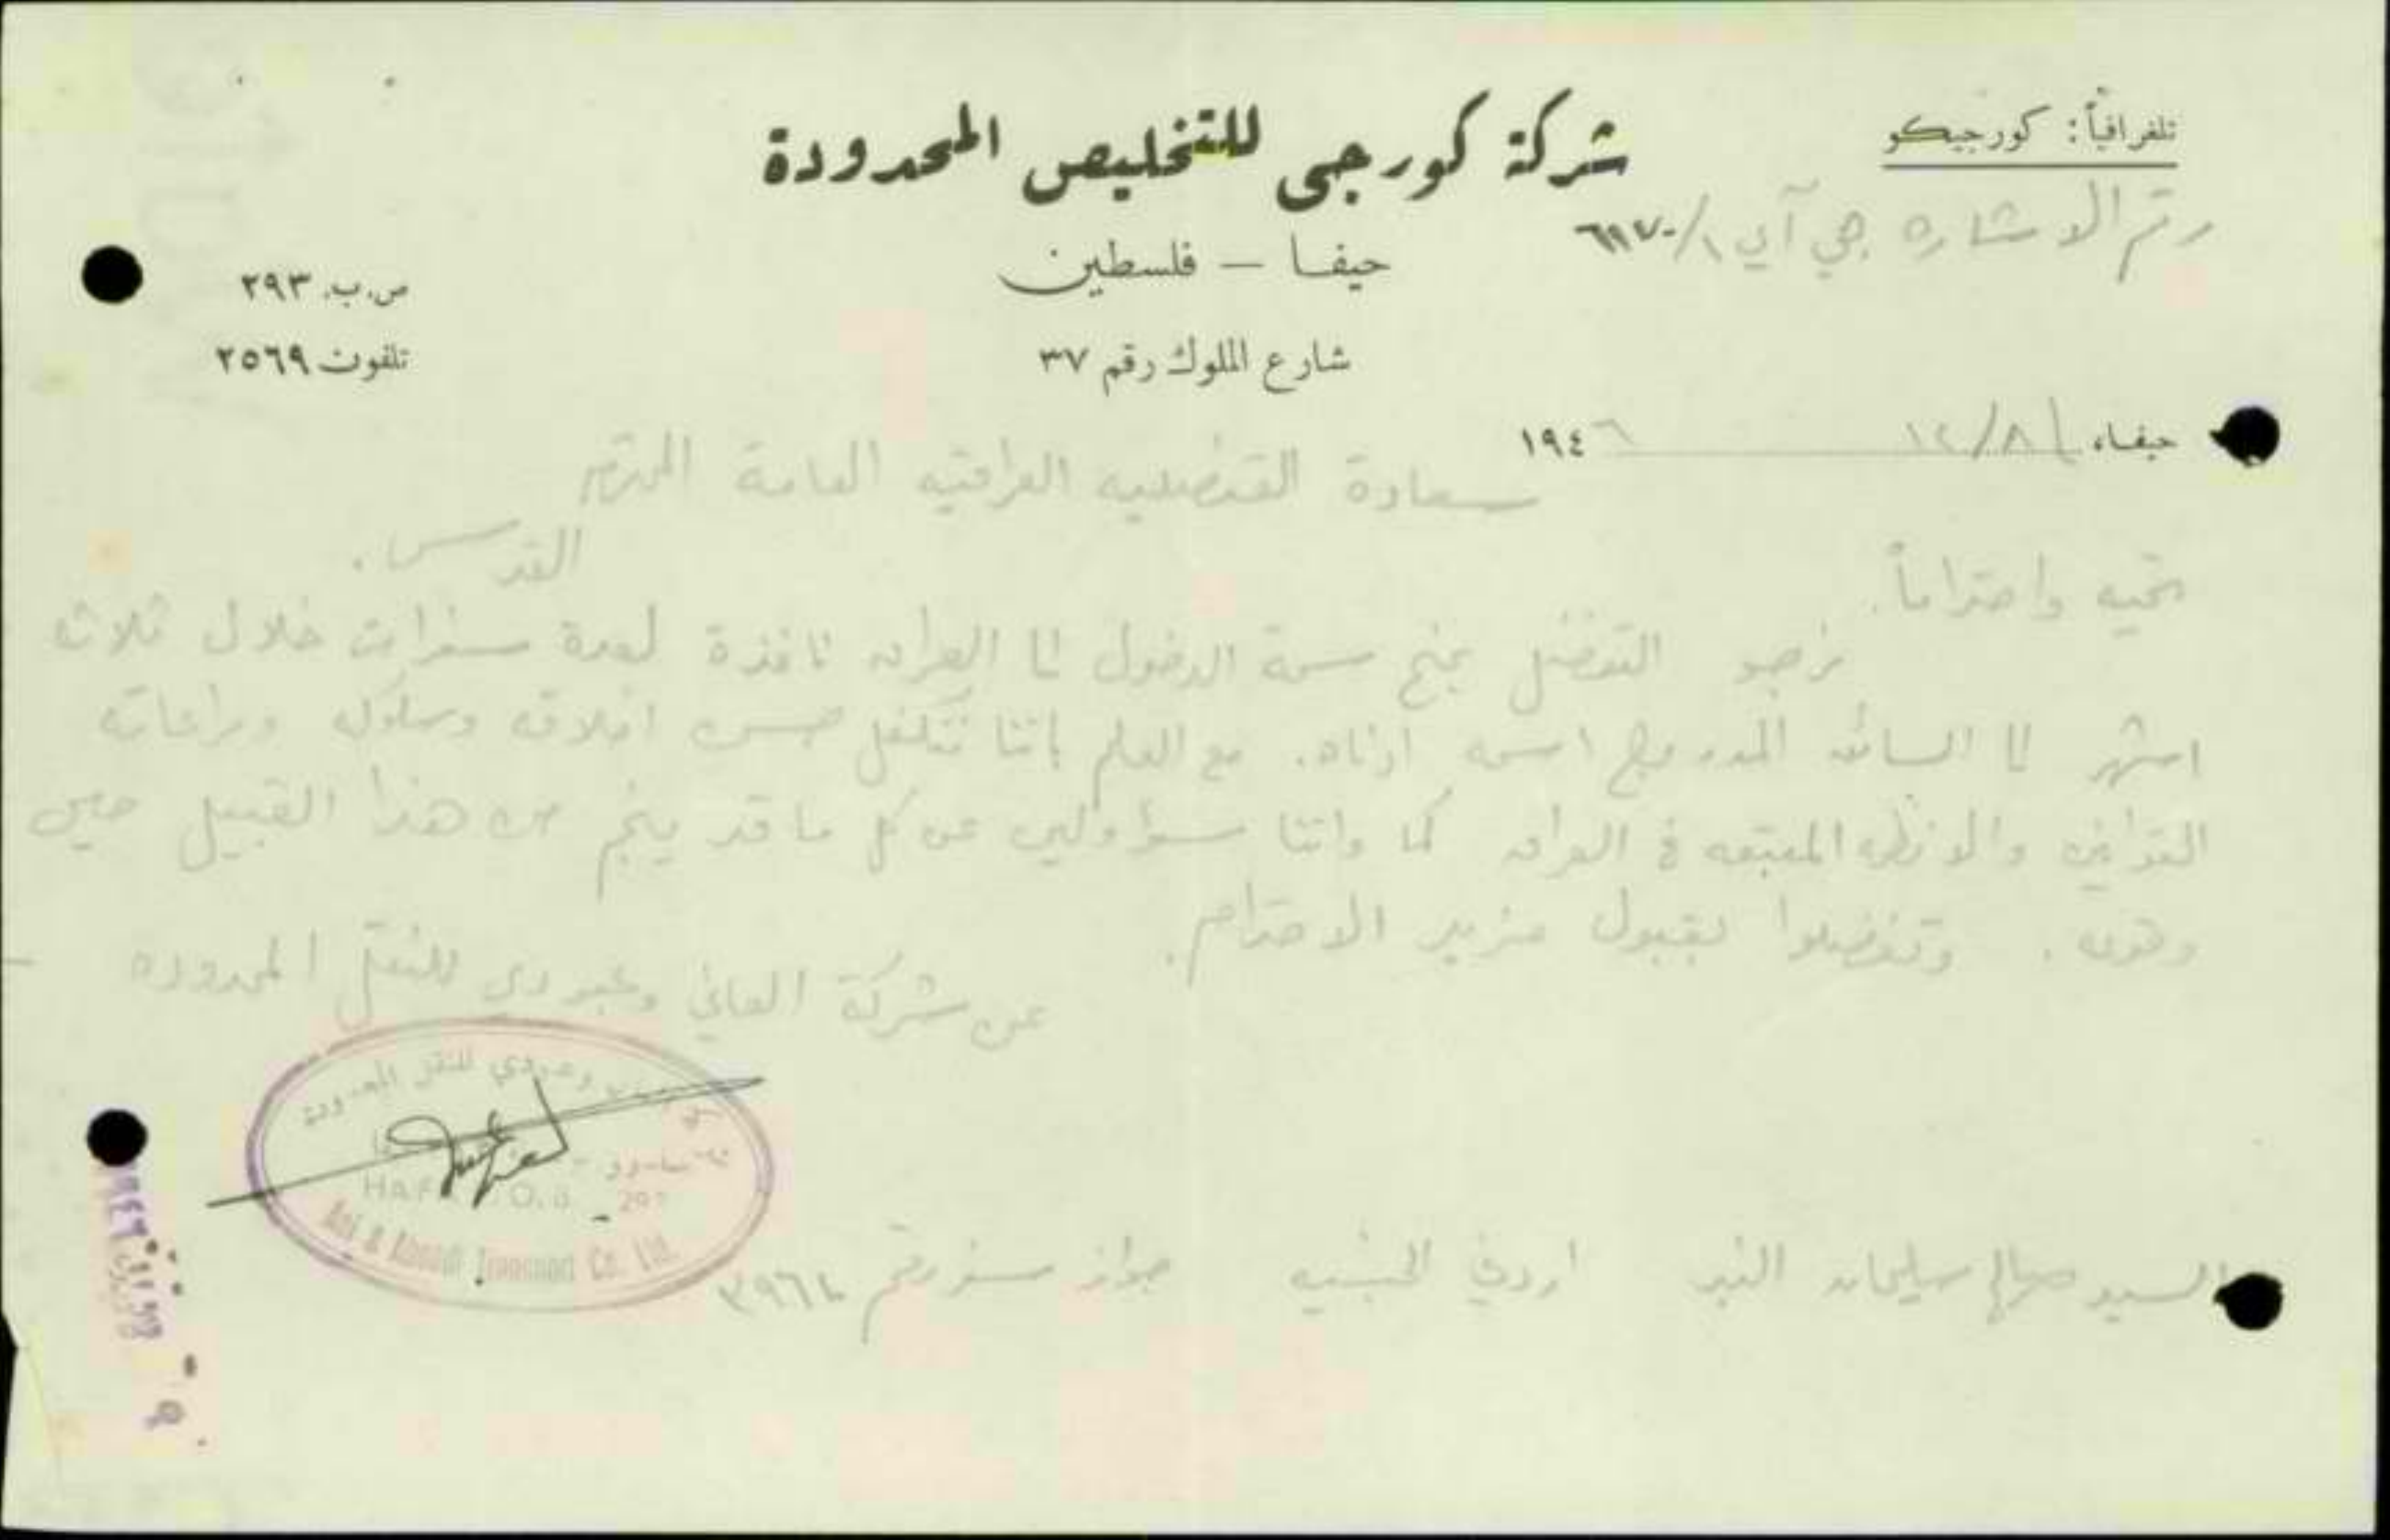 تلغرافياً: كورجيكو
شركة كورجي للتخليص المحدودة
رقم الاشاره جي آي /
حيفا — فلسطين
ص.ب. ٢٩٣
شارع الملوك رقم ٣٧
تلفون ٢٥٦٩
حيفا، ١٢/٨ ١٩٤٦
سعادة القنصليه العراقيه العامة المحترم
القدس.
تحيه واحتراماً.
نرجو التفضل بمنح سمة الدخول الى العراق نافذة لعدة سفرات خلال ثلاث
اشهر الى السائق المدروج اسمه ادناه. مع العلم باننا نتكفل حسن اخلاقه وسلوكه ومراعاته
القوانين والانظمه المتبعه في العراق كما واننا مسؤولين عن كل ما قد ينجم من هذا القبيل حين
وقوعه. وتفضلوا بقبول مزيد الاحترام.
عن شركة العاني وعبودي للنقل المحدوده
وعبودي للنقل المحدودة
Ani & Aboudi Transport Co. Ltd.
السيد صالح سليمان اردني الجنسيه جواز سفر رقم ٣٩٦٤